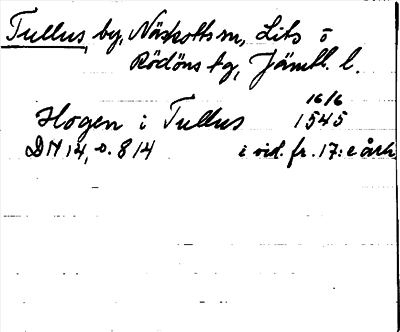 Tullus by, Näskotts sn, Lits o
Rödöns tg, Jämtl. l.
16/6
Hogen i Tullus 1545
DN 14, s. 814 i vid. fr. 17:e årh.